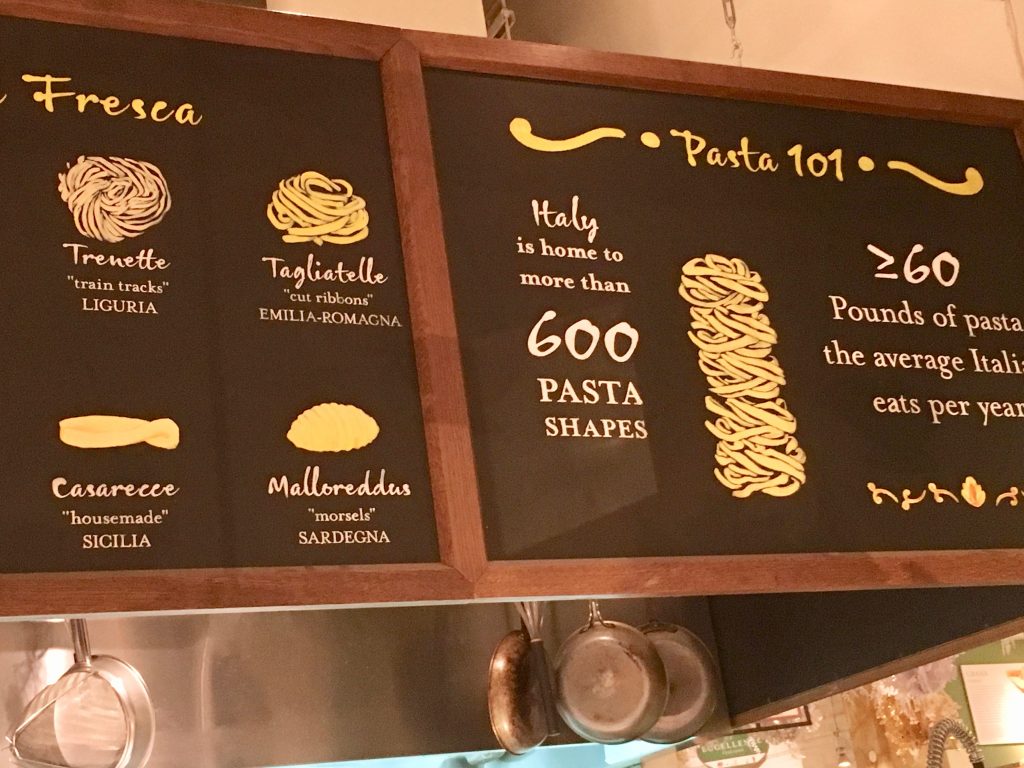 Fresca
Trenette
"train tracks"
LIGURIA
Tagliatelle
"cut ribbons"
EMILIA-ROMAGNA
Casarecce
"housemade"
SICILIA
Malloreddus
"morsels"
SARDEGNA
Pasta 101
Italy
is home to
more than
600
PASTA
SHAPES
≥60
Pounds of pasta
the average Italia
eats per year